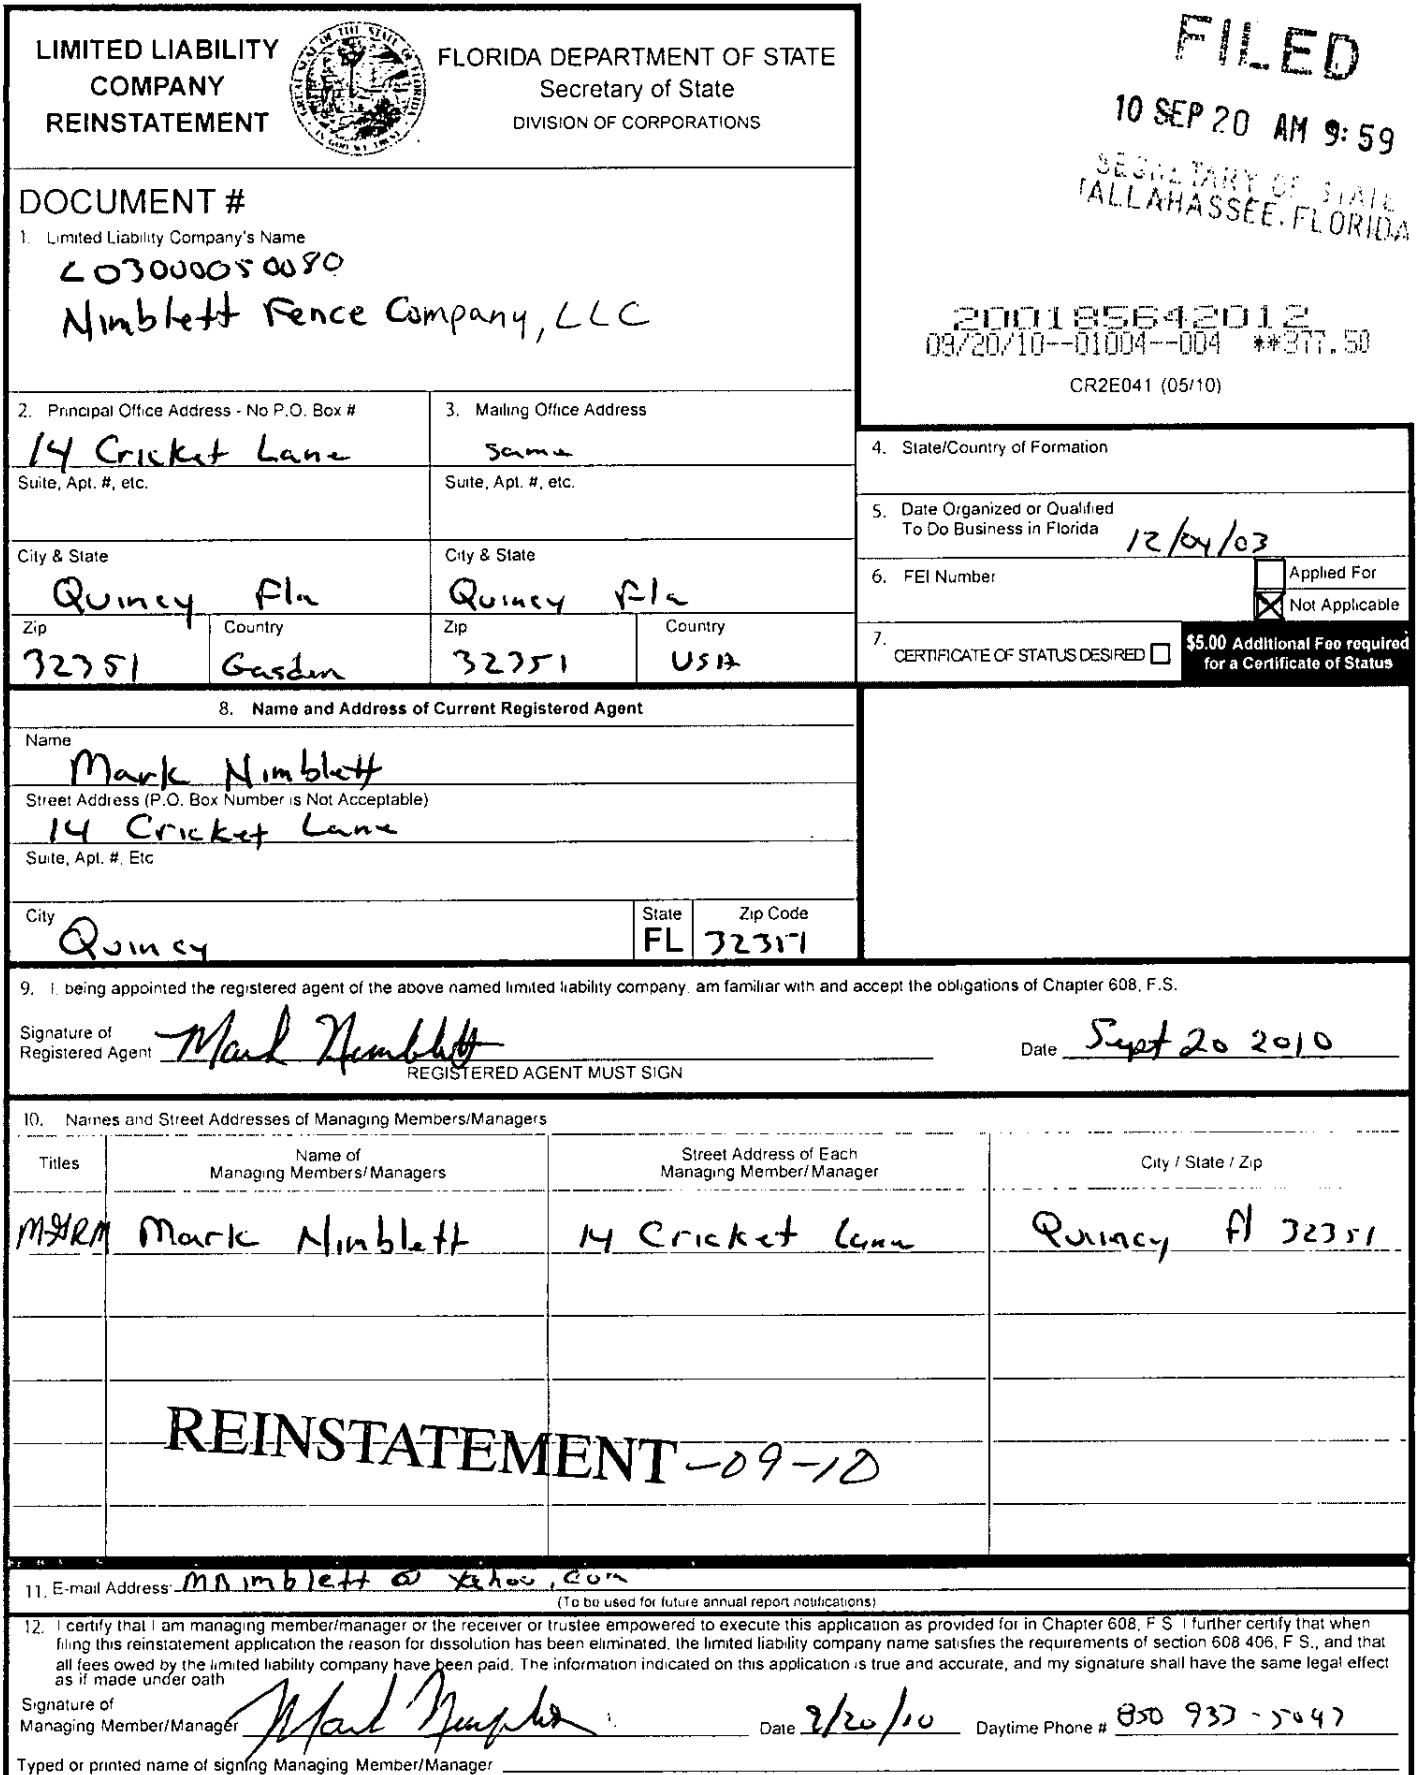 LIMITED LIABILITY
COMPANY
REINSTATEMENT
FLORIDA DEPARTMENT OF STATE
Secretary of State
DIVISION OF CORPORATIONS
FILED
10 SEP 20 AM 9:59
SECRETARY OF STATE
TALLAHASSEE, FLORIDA
DOCUMENT #
1. Limited Liability Company's Name
L03000050080
Nimblett Fence Company, LLC
200185642012
09/20/10--01004--004 **377.50
CR2E041 (05/10)
2. Principal Office Address - No P.O. Box #
14 Cricket Lane
Suite, Apt. #, etc.
City & State
Quincy Fla
Zip
32351
Country
Gasden
3. Mailing Office Address
Same
Suite, Apt. #, etc.
City & State
Quincy Fla
Zip
32351
Country
USA
4. State/Country of Formation
5. Date Organized or Qualified
To Do Business in Florida 12/04/03
6. FEI Number
Applied For
Not Applicable
7. CERTIFICATE OF STATUS DESIRED
$5.00 Additional Fee required
for a Certificate of Status
8. Name and Address of Current Registered Agent
Name
Mark Nimblett
Street Address (P.O. Box Number is Not Acceptable)
14 Cricket Lane
Suite, Apt. #, Etc
City
Quincy
State
FL
Zip Code
32351
9. I, being appointed the registered agent of the above named limited liability company, am familiar with and accept the obligations of Chapter 608, F.S.
Signature of
Registered Agent Mark Nimblett
REGISTERED AGENT MUST SIGN
Date Sept 20 2010
10. Names and Street Addresses of Managing Members/Managers
Titles
Name of
Managing Members/Managers
Street Address of Each
Managing Member/Manager
City / State / Zip
MGRM Mark Nimblett 14 Cricket Lane Quincy Fl 32351
REINSTATEMENT -09-10
11. E-mail Address: MNimblett @ Yahoo.com
(To be used for future annual report notifications)
12. I certify that I am managing member/manager or the receiver or trustee empowered to execute this application as provided for in Chapter 608, F S I further certify that when
filing this reinstatement application the reason for dissolution has been eliminated, the limited liability company name satisfies the requirements of section 608 406, F S., and that
all fees owed by the limited liability company have been paid. The information indicated on this application is true and accurate, and my signature shall have the same legal effect
as if made under oath
Signature of
Managing Member/Manager Mark
Date 9/20/10
Daytime Phone # 850 933-5047
Typed or printed name of signing Managing Member/Manager